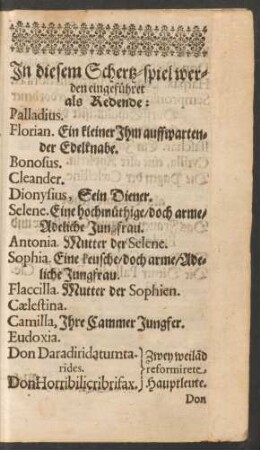 In diesem Schertz-spiel wer-
den eingeführet
als Redende:
Palladius.
Florian. Ein kleiner Ihm auffwarten-
der Edelknabe.
Bonosus.
Cleander.
Dionysius, Sein Diener.
Selene. Eine hochmüthige/doch arme/
Adeliche Jungfrau.
Antonia. Mutter der Selene.
Sophia. Eine keusche/doch arme/Ade-
liche Jungfrau.
Flaccilla. Mutter der Sophien.
Cælestina.
Camilla, Ihre Cammer Jungfer.
Eudoxia.
Don Daradiridatumta- } Zwey weilãd
rides. } reformirete
Don Horribilicribrifax. } Hauptleute.
Don